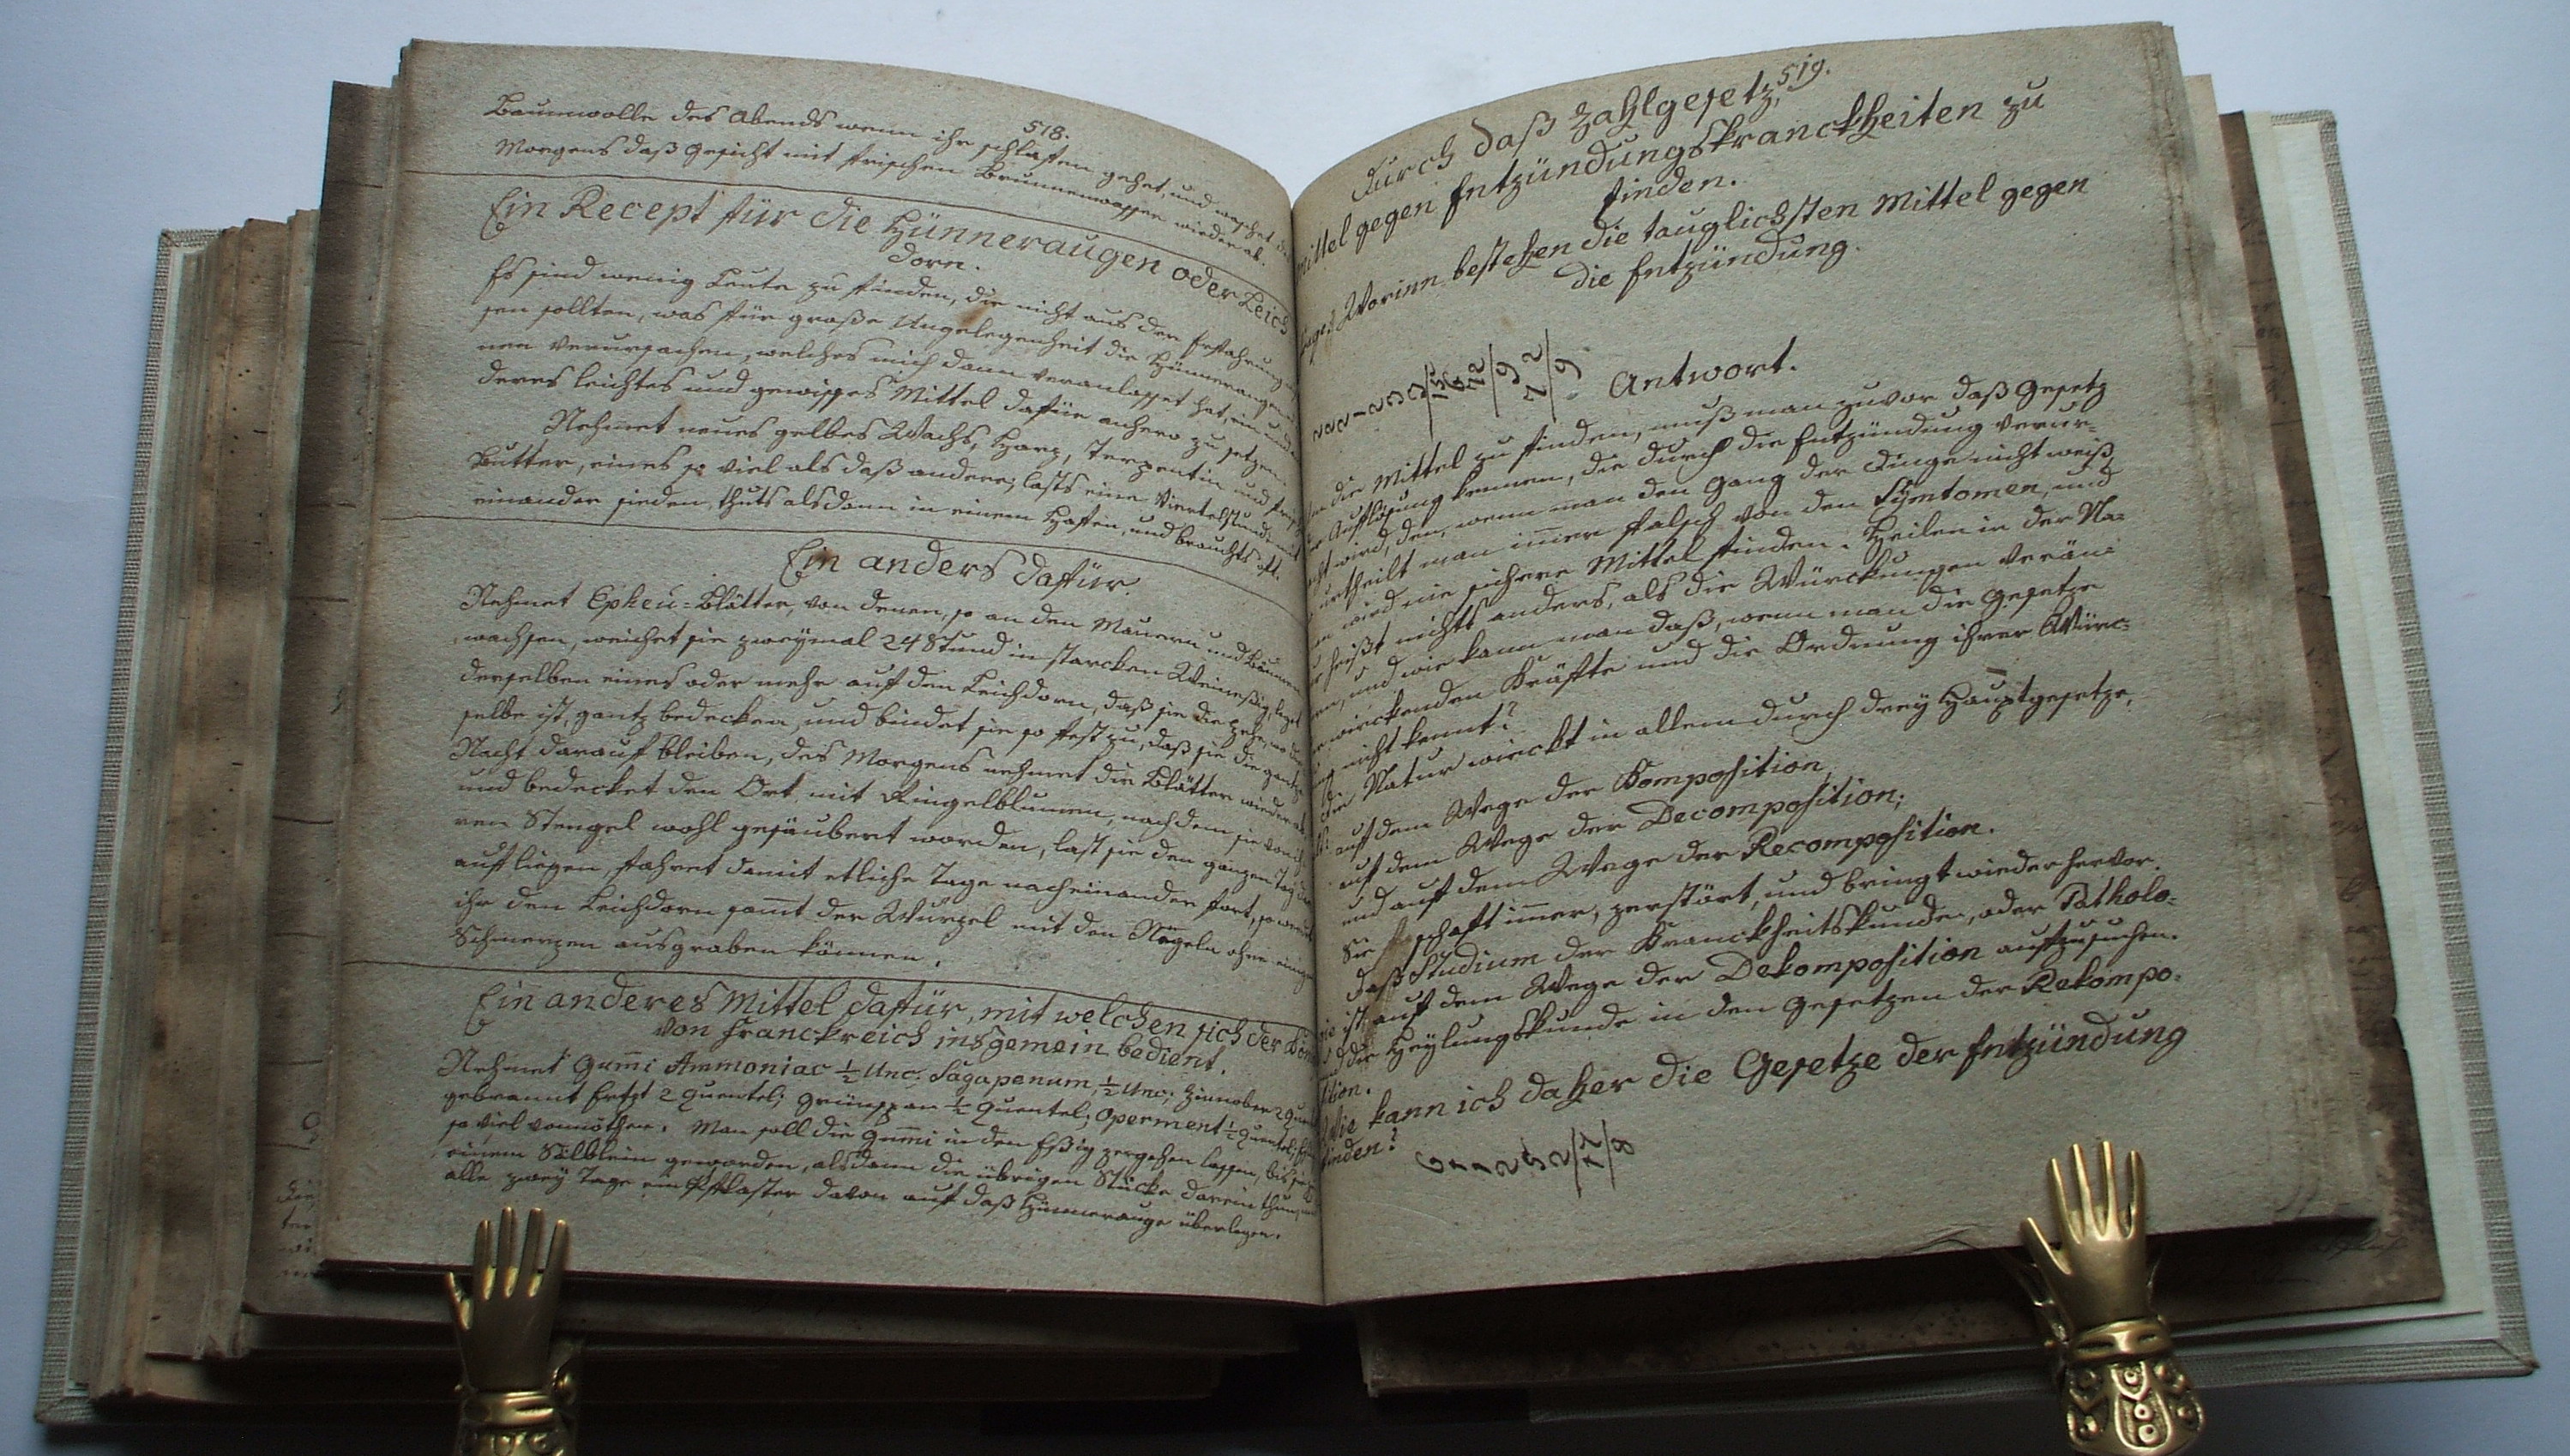 518.
Baumwolle des Abends wenn ihr schlaffen gehet, und waschet
Morgens daß Gesicht mit frischen Brunnenwasser wieder ab.
Ein Recept für die Hünneraugen oder Leich
dorn.
Es sind wenig Leute zu finden, die nicht aus der Erfahrung
sen sollten, was für große Ungelegenheit die Hünneraugen
nen verursachen, welches mich dann veranlasset hat, ein und
deres leichtes und gewisses Mittel dafür anhero zu setzen.
Nehmet neues gelbes Wachs, Harz, Terpentin und frisch
Butter, eines so viel als daß andere; lasts eine Viertelstund mit
einander sieden, thuts alsdann in einem Hafen, und brauchts oft.
Ein anders dafür.
Nehmet Epheu-Blätter, von denen, so an den Mauern und Bäumen
wachsen, weichet sie zweymal 24 Stund in starcken Weineßig, leget
derselben eines oder mehr auf den Leichdorn, daß sie die Zehe, wo
selbe ist, gantz bedecken, und bindet sie so fest zu, daß sie die gantze
Nacht darauf bleiben, des Morgens nehmet die Blätter wieder ab
und bedecket den Ort mit Ringelblumen, nachdem sie von
ren Stengel wohl gesäubert worden, last sie den ganzen Tag
auf liegen, fahret damit etliche Tage nacheinander fort, so werdet
ihr den Leichdorn samt der Wurzel mit den Nägeln ohne einige
Schmerzen ausgraben können.
Ein anderes Mittel dafür, mit welchen sich der Kön
von Franckreich insgemein bedient.
Nehmet Gumi Ammoniac ½ Unc. Sagapenum, ½ Unc; Zinnober 2 Quent
gebrannt Ertzt 2 Quentel; Grünspan ½ Quentel; Operment ½ Quentel;
so viel vonnöthen. Man soll die Gumi in den Eßig zergehen lassen, bis sie
einem Sälblein geworden, alsdann die übrigen Stücke darein thun,
alle zwey Tage ein Pflaster davon auf daß Hünnerauge überlegen.
519.
Durch daß Zahlgesetz,
Mittel gegen Entzündungskranckheiten zu
finden.
Worinn bestehen die tauglichsten Mittel gegen
die Entzündung.
Antwort.
die Mittel zu finden, muß man zuvor daß Gesetz
Auflösung kennen, die durch die Entzündung verur-
wird, den, wenn man den Gang der Dinge nicht weiß
urtheilt man imer falsch von den Symtomen, und
wird nie sichere Mittel finden. Heilen in der Na-
heißt nichts anders, als die Würckungen verän-
und wie kann man daß, wenn man die Gesetze
wirckenden Kräfte und die Ordnung ihrer Würc-
nicht kennt?
Die Natur wirckt in allem durch drey Hauptgesetze,
auf dem Wege der Komposition,
auf dem Wege der Decomposition;
und auf dem Wege der Recomposition.
Sie schaft imer, zerstört, und bringt wieder hervor.
Daß Studium der Kranckheitskunde, oder Patholo-
gie ist auf dem Wege der Dekomposition aufzusuchen.
die Heylungskunde in den Gesetzen der Rekompo-
sition.
Wie kann ich daher die Gesetze der Entzündung
finden?